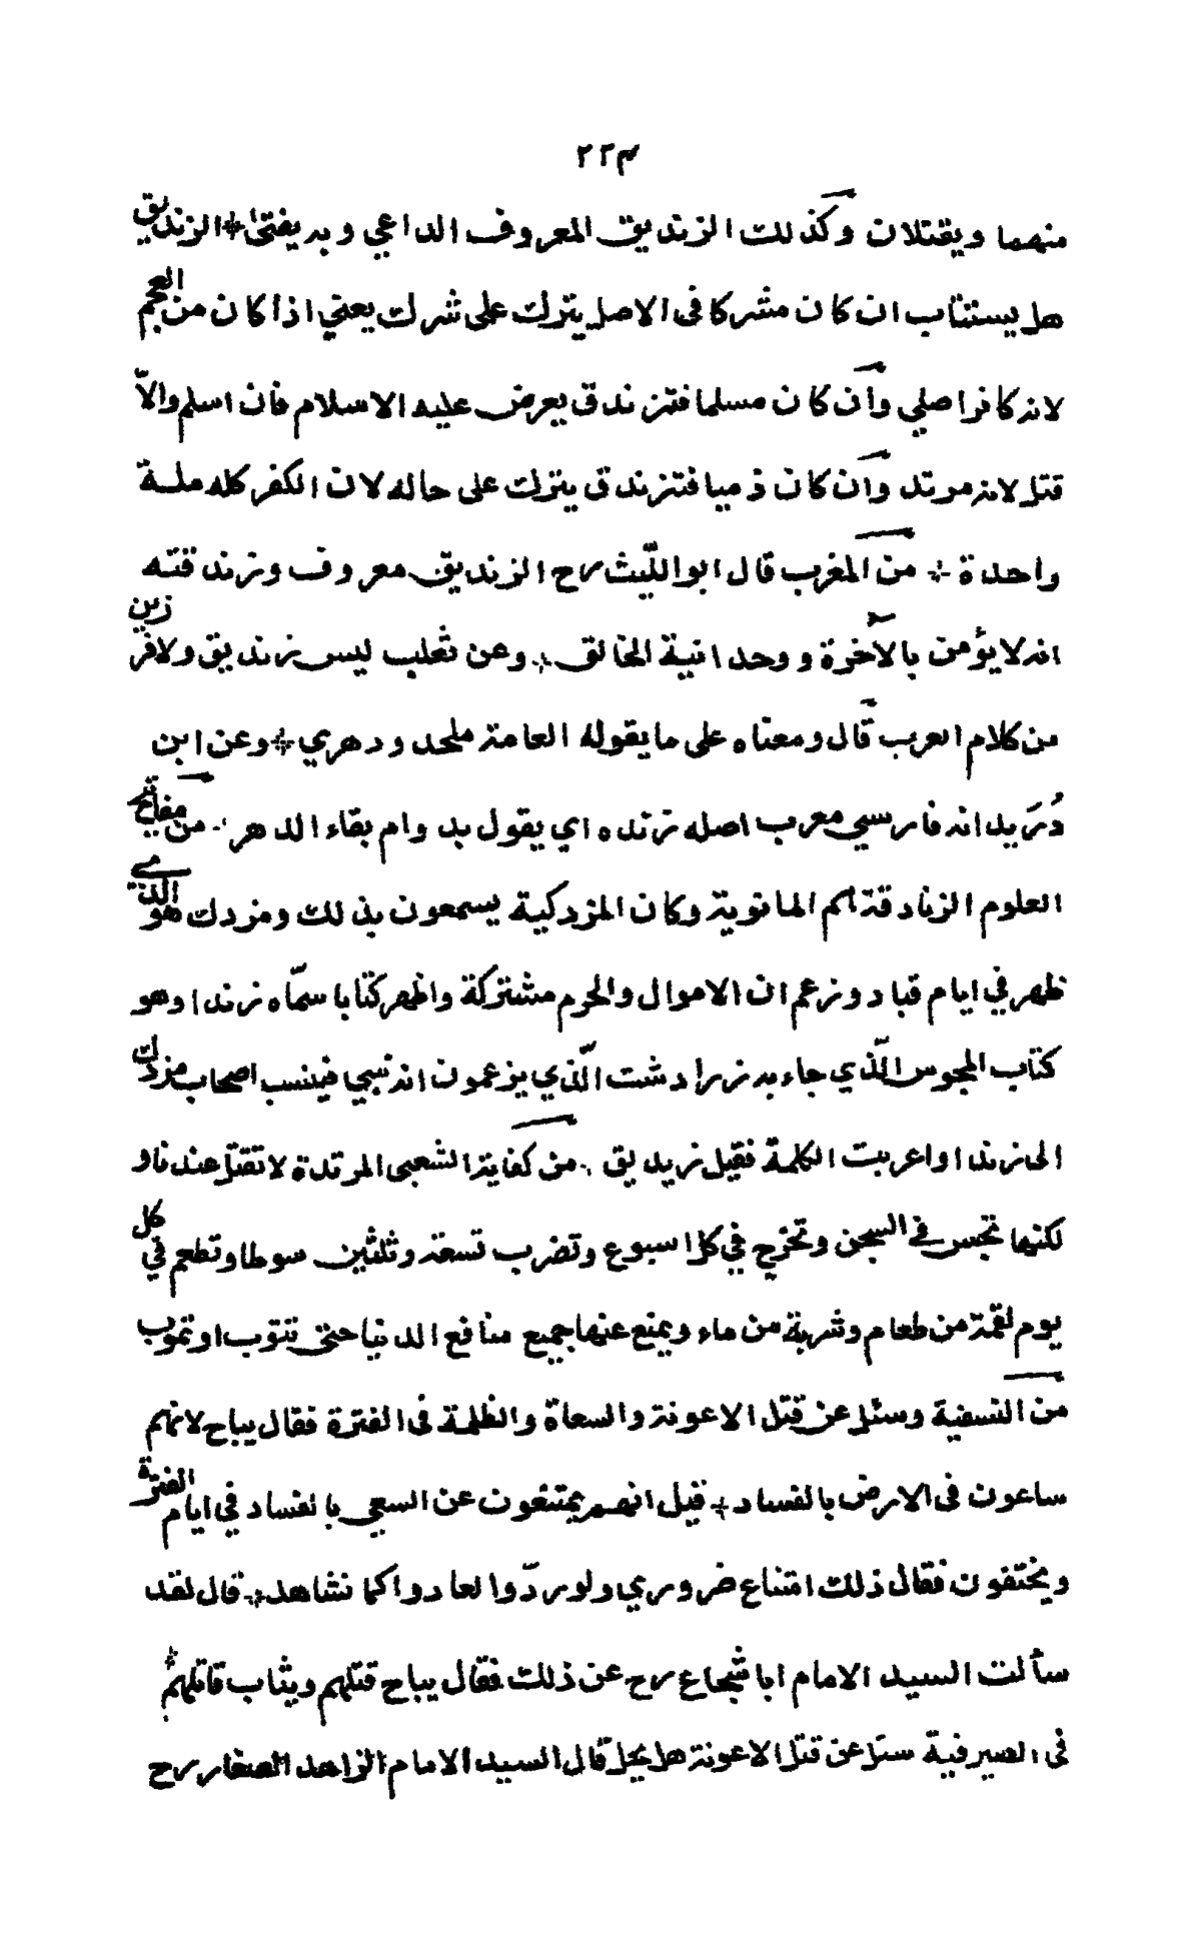 ٢٢٣
منهما ويقتلان وكذلك الزنديق المعروف الداعي وبه يفتى * الزنديق
هل يستتاب ان كان مشركا فى الاصل يترك على شرك يعني اذا كان من العجم
لانه كافر اصلي وان كان مسلما فتزندق يعرض عليه الاسلام فان اسلم والّا
قتل لانه مرتد وان كان ذميا فتزندق يترك على حاله لان الكفر كله ملة
واحدة * من المغرب قال ابو اللّيث رح الزنديق معروف وزندقته
انه لا يؤمن بالآخرة ووحدانية الخالق * وعن ثعلب ليس زنديق ولا فرزين
من كلام العرب قال ومعناه على ما يقوله العامة ملحد ودهري * وعن ابن
دُرَيد انه فارسي معرب اصله زنده اي يقول بدوام بقاء الدهر * من مفاتيح
العلوم الزنادقة هم المانوية وكان المزدكية يسمعون بذلك ومزدك هو الذي
ظهر في ايام قباد وزعم ان الاموال والحرم مشتركة واظهر كتابا سمّاه زندا وهو
كتاب المجوس الّذي جاء به زرادشت الّذي يزعمون انه نبي فينسب اصحاب مزدك
الى زندا واعربت الكلمة فقيل زيديق * من كفاية الشعبى المرتدة لا تقتل عندنا و
لكنها تحبس في السجن وتخرج في كل اسبوع وتضرب تسعة وثلثين سوطا وتطعم في كل
يوم لقمة من طعام وشربة من ماء ويمنع عنها جميع منافع الدنيا حتى تتوب او تموت
من النسفية وسئل عن قتل الاعونة والسعاة والظلمة فى الفترة فقال يباح لانهم
ساعون فى الارض بالفساد * قيل انهم يمتنعون عن السعي بالفساد في ايام الفترة
ويختفون فقال ذلك امتناع ضروري ولو ردّوا لعادوا كما نشاهد * قال لقد
سألت السيد الامام ابا شجاع رح عن ذلك فقال يباح قتلهم ويثاب قاتلهم *
فى الصيرفية سئل عن قتل الاعونة هل يحل قال السيد الامام الزاهد الصفار رح